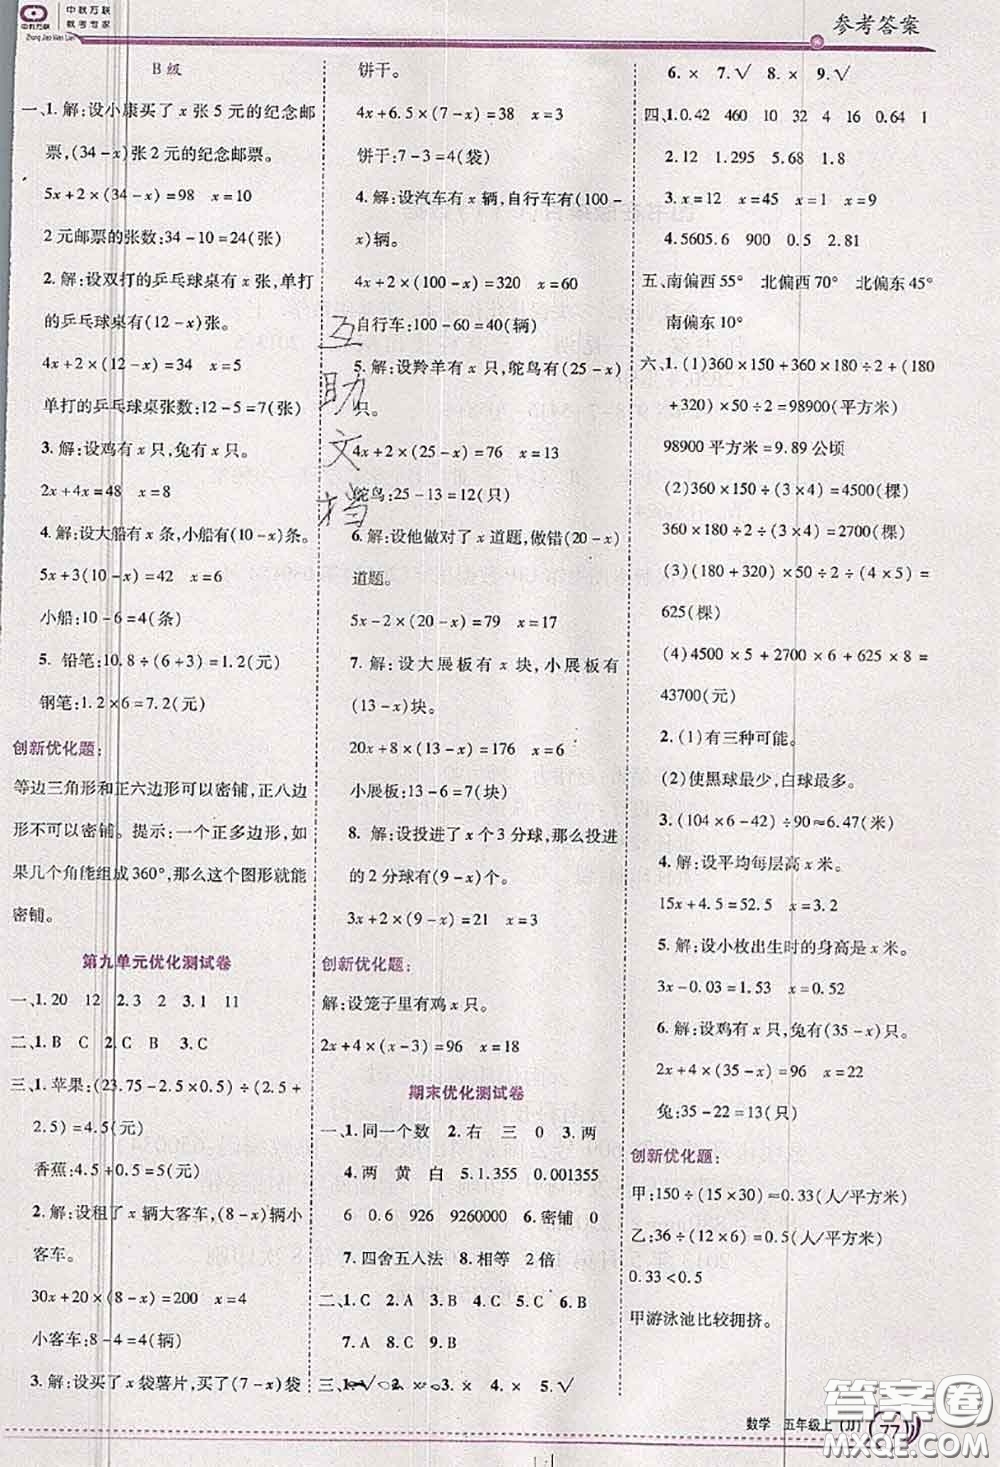 中教万联
教考专家
Zhong Jiao Wan Lian
参考答案
B级
一、1. 解:设小康买了 x 张 5 元的纪念邮
票,(34-x)张 2 元的纪念邮票。
5x+2×(34-x)=98 x=10
2 元邮票的张数:34-10=24(张)
2. 解:设双打的乒乓球桌有 x 张,单打
的乒乓球桌有(12-x)张。
4x+2×(12-x)=34 x=5
单打的乒乓球桌张数:12-5=7(张)
3. 解:设鸡有 x 只,兔有 x 只。
2x+4x=48 x=8
4. 解:设大船有 x 条,小船有(10-x)条。
5x+3(10-x)=42 x=6
小船:10-6=4(条)
5. 铅笔:10.8÷(6+3)=1.2(元)
钢笔:1.2×6=7.2(元)
创新优化题:
等边三角形和正六边形可以密铺,正八边
形不可以密铺。提示:一个正多边形,如
果几个角能组成360°,那么这个图形就能
密铺。
第九单元优化测试卷
一、1.20 12 2.3 2 3.1 11
二、1.B C 2.C B 3.C
三、1. 苹果:(23.75-2.5×0.5)÷(2.5+
2.5)=4.5(元)
香蕉:4.5+0.5=5(元)
2. 解:设租了 x 辆大客车,(8-x)辆小
客车。
30x+20×(8-x)=200 x=4
小客车:8-4=4(辆)
3. 解:设买了 x 袋薯片,买了(7-x)袋
饼干。
4x+6.5×(7-x)=38 x=3
饼干:7-3=4(袋)
4. 解:设汽车有 x 辆,自行车有(100-
x)辆。
4x+2×(100-x)=320 x=60
自行车:100-60=40(辆)
5. 解:设羚羊有 x 只,鸵鸟有(25-x)
只。
4x+2×(25-x)=76 x=13
鸵鸟:25-13=12(只)
6. 解:设他做对了 x 道题,做错(20-x)
道题。
5x-2×(20-x)=79 x=17
7. 解:设大展板有 x 块,小展板有
(13-x)块。
20x+8×(13-x)=176 x=6
小展板:13-6=7(块)
8. 解:设投进了 x 个 3 分球,那么投进
的 2 分球有(9-x)个。
3x+2×(9-x)=21 x=3
创新优化题:
解:设笼子里有鸡 x 只。
2x+4×(x-3)=96 x=18
期末优化测试卷
一、1.同一个数 2.右 三 0 3.两
4.两 黄 白 5.1.355 0.001355
6 0.6 926 9260000 6.密铺 0
7.四舍五入法 8.相等 2倍
二、1.C 2.A 3.B 4.C 5.C 6.B
7.A 8.C 9.B
三、1.√ 2.× 3.× 4.× 5.√
6.× 7.√ 8.× 9.√
四、1.0.42 460 10 32 4 16 0.64 1
2.12 1.295 5.68 1.8
3.x=12 x=45 x=1 x=9
4.5605.6 900 0.5 2.81
五、南偏西55° 北偏西70° 北偏东45°
南偏东10°
六、1.(1)(360×150+360×180÷2+(180
+320)×180÷2=98900(平方米)
98900平方米=9.89公顷
(2)360×150÷(3×4)=4500(棵)
360×180÷2÷(3×4)=2700(棵)
(3)(180+320)×50÷2÷(4×5)=
625(棵)
(4)4500×5+2700×6+625×8=
43700(元)
2.(1)有三种可能。
(2)使黑球最少,白球最多。
3.(104×6-42)÷90≈6.47(米)
4. 解:设平均每层高 x 米。
15x+4.5=52.5 x=3.2
5. 解:设小枚出生时的身高是 x 米。
3x-0.03=1.53 x=0.52
6. 解:设鸡有 x 只,兔有(35-x)只。
2x+4×(35-x)=96 x=22
兔:35-22=13(只)
创新优化题:
甲:150÷(15×30)≈0.33(人/平方米)
乙:36÷(12×6)=0.5(人/平方米)
0.33<0.5
甲游泳池比较拥挤。
互
助
文
档
数学 五年级上(JJ) 77
答案圈
MXQE.COM